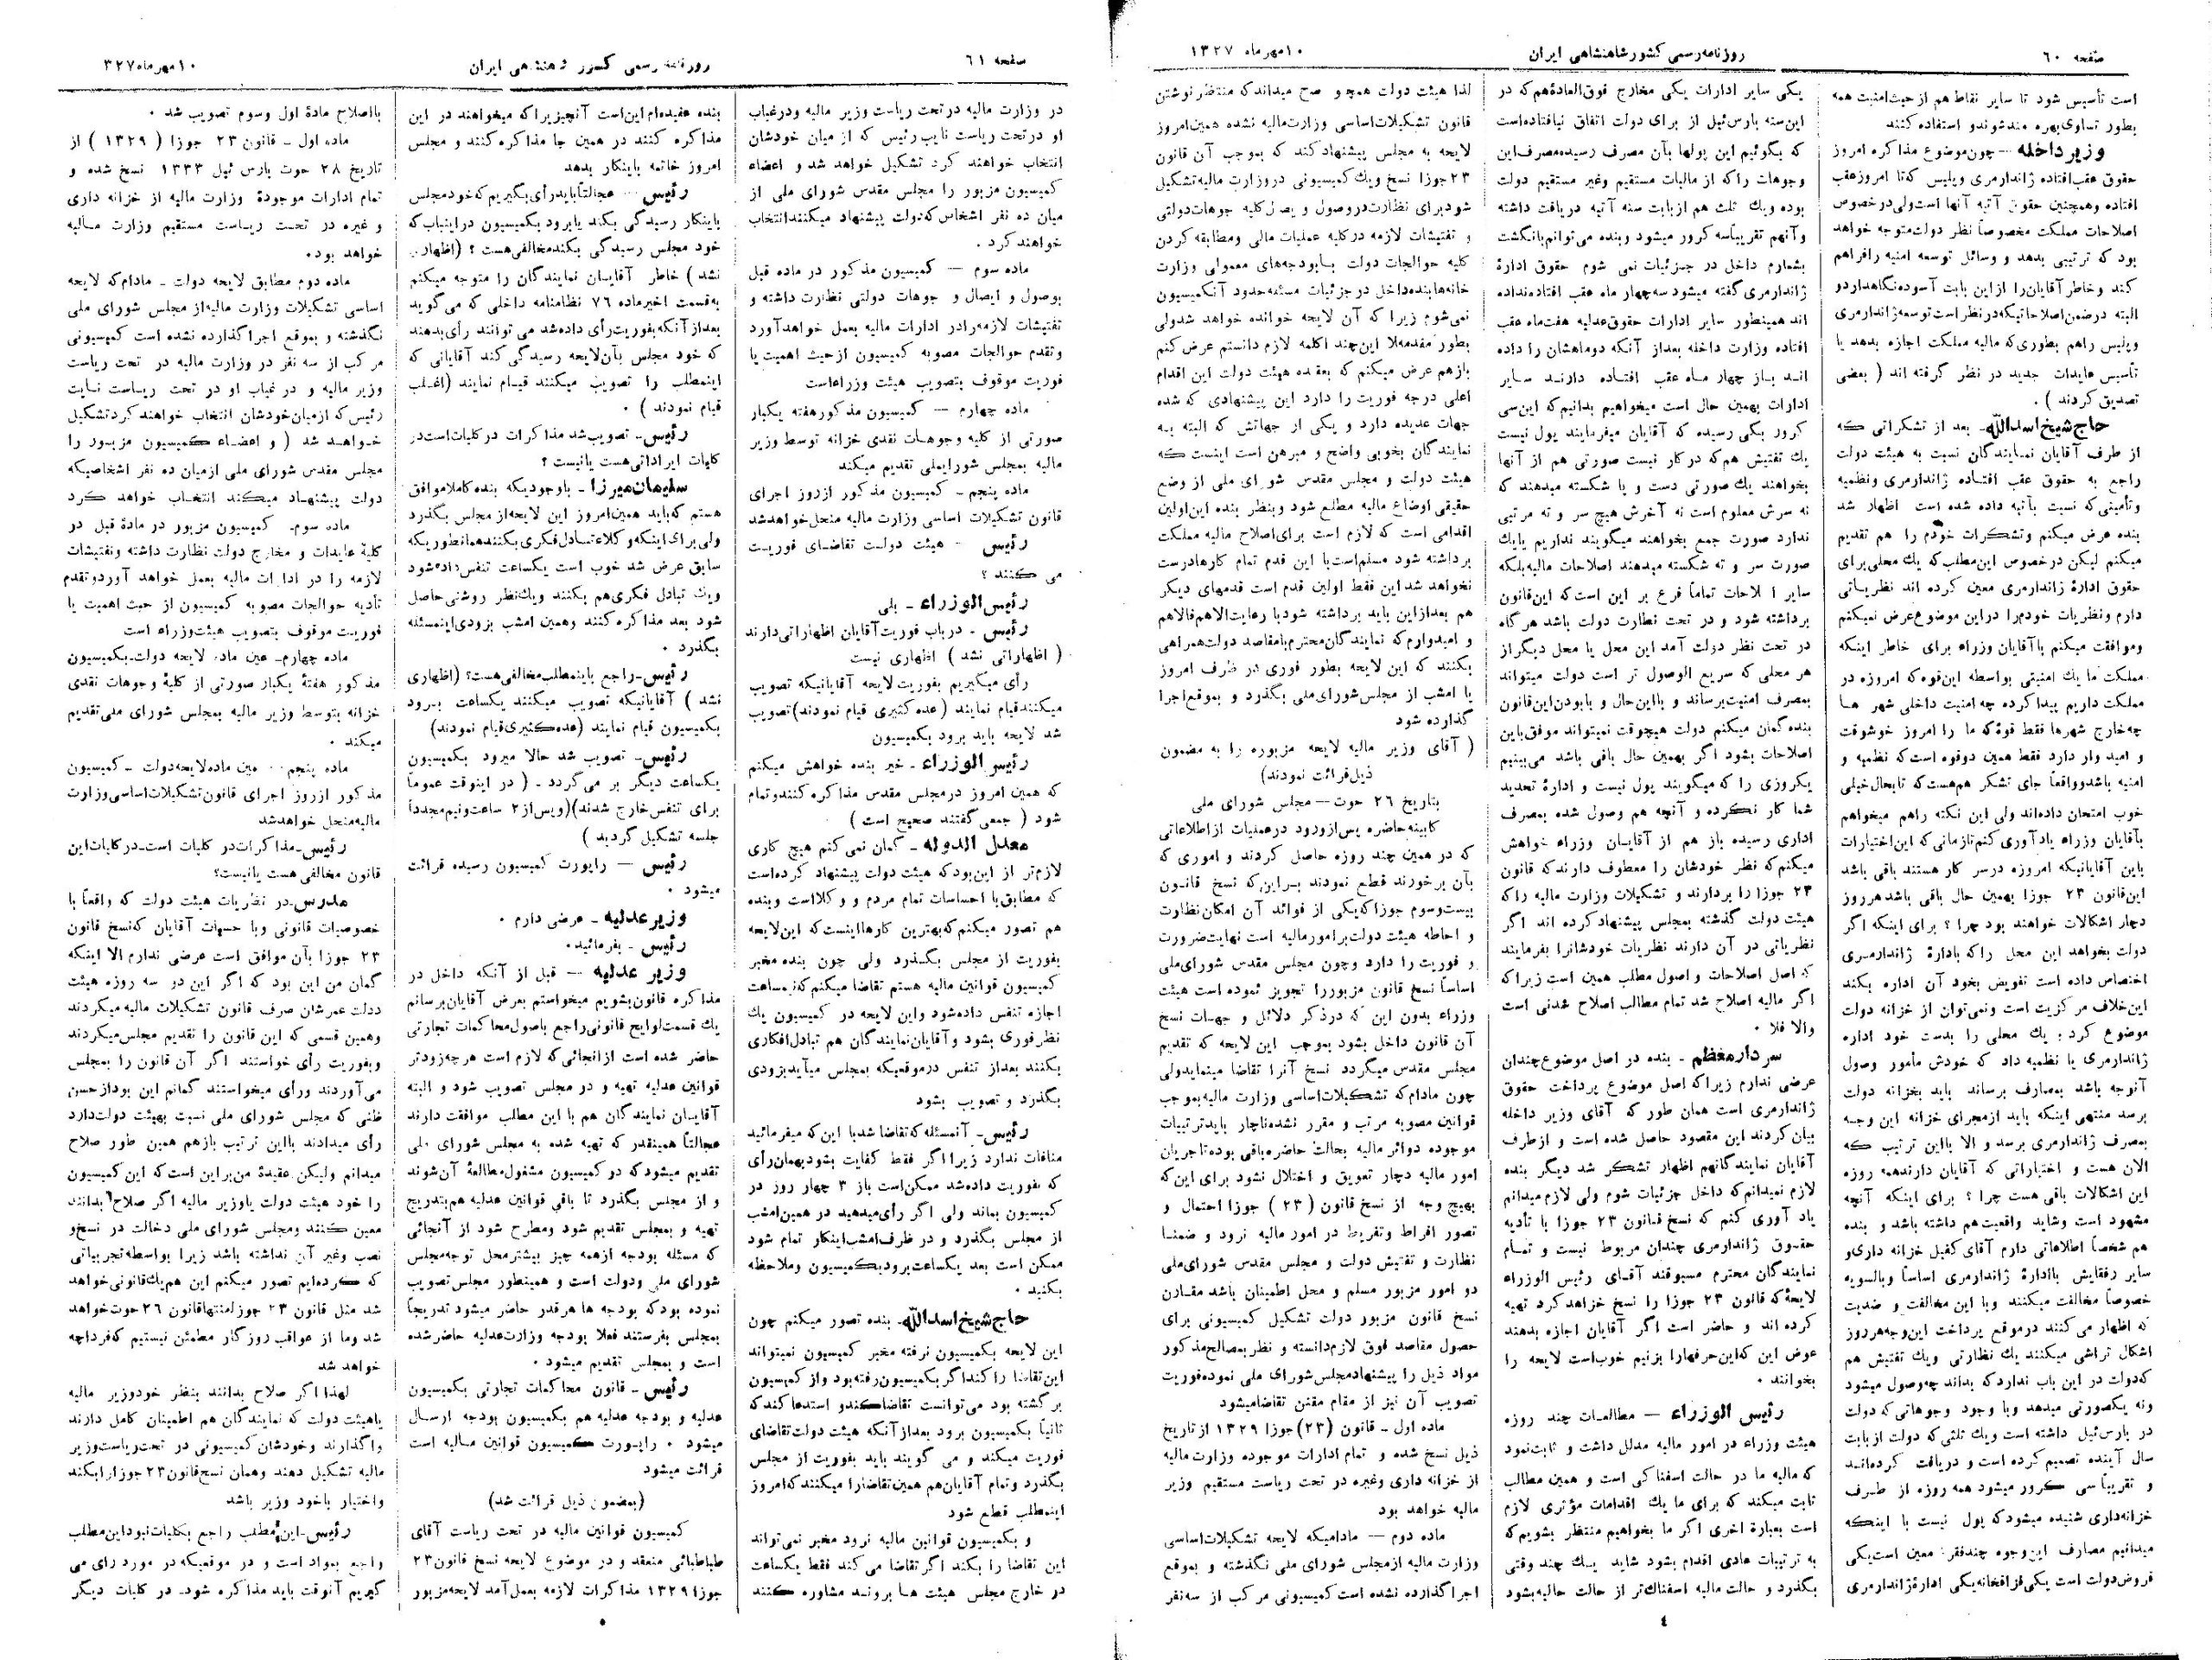 صفحه ۶۰
روزنامه رسمی کشور شاهنشاهی ایران
۱۰ مهرماه ۱۳۲۷
است تأسیس شود تا سایر نقاط هم از حیث امنیت همه
بطور تساوی بهره مند شوند و استفاده کنند
وزیر داخله – چون موضوع مذاکره امروز
حقوق عقب افتاده ژاندارمری و پلیس که تا امروز عقب
افتاده و همچنین حقوق آتیه آنها است ولی در خصوص
اصلاحات مملکت مخصوصاً نظر دولت متوجه خواهد
بود که ترتیبی بدهد و وسائل توسعه امنیه را فراهم
کند و خاطر آقایان را از این بابت آسوده نگاهدارد و
البته در ضمن اصلاحاتیکه در نظر است توسعه ژاندارمری
و پلیس را هم بطوری که مالیه مملکت اجازه بدهد یا
تأسیس عایدات جدید در نظر گرفته اند ( بعضی
تصدیق کردند ) .
حاج شیخ اسدالله – بعد از تشکراتی که
از طرف آقایان نمایندگان نسبت به هیئت دولت
راجع به حقوق عقب افتاده ژاندارمری و نظمیه
و تأمینی که نسبت بآتیه داده شده است اظهار شد
بنده عرض میکنم و تشکرات خودم را هم تقدیم
میکنم لیکن در خصوص این مطلب که یك محلی برای
حقوق ادارهٔ ژاندارمری معین کرده اند نظریاتی
دارم و نظریات خودم را در این موضوع عرض نمیکنم
و موافقت میکنم با آقایان وزراء برای خاطر اینکه
مملکت ما یك امنیتی بواسطه این قوه که امروزه در
مملکت داریم پیدا کرده چه امنیت داخلی شهر ها
چه خارج شهرها فقط قوهٔ که ما را امروز خوشوقت
و امید وار دارد فقط همین دو قوه است که نظمیه و
امنیه باشد و واقعاً جای تشکر هم هست که تا بحال خیلی
خوب امتحان داده اند ولی این نکته را هم میخواهم
بآقایان وزراء یاد آوری کنم تا زمانی که این اختیارات
باین آقایانیکه امروزه در سر کار هستند باقی باشد
این قانون ۲۳ جوزا بهمین حال باقی باشد هر روز
دچار اشکالات خواهند بود چرا ؟ برای اینکه اگر
دولت بخواهد این محل را که بادارهٔ ژاندارمری
اختصاص داده است تفویض بخود آن اداره بکند
این خلاف مرکزیت است و نمی توان از خزانه دولت
موضوع کرد ؛ یك محلی را بدست خود اداره
ژاندارمری یا نظمیه داد که خودش مأمور وصول
آنوجه باشد بمصارف برساند باید بخزانه دولت
برسد منتهی اینکه باید از مجرای خزانه این وجه
بمصرف ژاندارمری برسد و الا با این ترتیب که
الان هست و اختیاراتی که آقایان دارند همه روزه
این اشکالات باقی هست چرا ؟ برای اینکه آنچه
مشهود است و شاید واقعیت هم داشته باشد و بنده
هم شخصاً اطلاعاتی دارم آقای کفیل خزانه داری و
سایر رفقایش با ادارهٔ ژاندارمری اساساً و بالسویه
خصوصاً مخالفت میکنند و با این مخالفت و ضدیت
که اظهار می کنند در موقع پرداخت این وجه هر روز
اشکال تراشی میکنند یك نظارتی و یك تفتیش هم
که دولت در این باب ندارد که بداند چه وصول میشود
و نه یکصورتی میدهد و با وجود وجوهاتی که دولت
در پارس ئیل داشته است و یك ثلثی که دولت از بابت
سال آینده تصمیم کرده است و دریافت کرده اند
و تقریباً سی کرور میشود همه روزه از طرف
خزانه داری شنیده میشود که پول نیست با اینکه
میدانیم مصارف این وجوه چند فقره معین است یکی
قروض دولت است یکی قزاقخانه یکی ادارهٔ ژاندارمری
یکی سایر ادارات یکی مخارج فوق العادهٔ هم که در
این سنه پارس ئیل از برای دولت اتفاق نیافتاده است
که بگوئیم این پولها بآن مصرف رسیده مصرف این
وجوهات را که از مالیات مستقیم و غیر مستقیم دولت
بوده و یك ثلث هم از بابت سنه آتیه دریافت داشته
و آنهم تقریباً سه کرور میشود و بنده می توانم بانگشت
بشمارم داخل در جزئیات نمی شوم حقوق ادارهٔ
ژاندارمری گفته میشود سه چهار ماه عقب افتاده نداده
اند همینطور سایر ادارات حقوق عدلیه هفت ماه عقب
افتاده وزارت داخله بعد از آنکه دو ماهشان را داده
اند باز چهار ماه عقب افتاده دارند سایر
ادارات بهمین حال است میخواهیم بدانیم که این سی
کرور بکی رسیده که آقایان میفرمایند پول نیست
یك تفتیش هم که در کار نیست صورتی هم از آنها
بخواهند یك صورتی دست و پا شکسته میدهند که
نه سرش معلوم است نه آخرش هیچ سر و ته مرتبی
ندارد صورت جمع بخواهند میگویند نداریم یا یك
صورت سر و ته شکسته میدهند اصلاحات مالیه بلکه
سایر اصلاحات تماماً فرع بر این است که این قانون
برداشته شود و در تحت نظارت دولت باشد هر گاه
در تحت نظر دولت آمد این محل یا محل دیگر از
هر محلی که سریع الوصول تر است دولت میتواند
بمصرف امنیت برساند و با این حال و با بودن این قانون
بنده گمان میکنم دولت هیچوقت نمیتواند موفق باین
اصلاحات بشود اگر بهمین حال باقی باشد می بینیم
یکروزی را که میگویند پول نیست و ادارهٔ تحدید
شما کار نکرده و آنچه هم وصول شده بمصرف
اداری رسیده باز هم از آقایان وزراء خواهش
میکنم که نظر خودشان را معطوف دارند که قانون
۲۳ جوزا را بردارند و تشکیلات وزارت مالیه را که
هیئت دولت گذشته بمجلس پیشنهاد کرده اند اگر
نظریاتی در آن دارند نظریات خودشانرا بفرمایند
که اصل اصلاحات و اصول مطلب همین است زیرا که
اگر مالیه اصلاح شد تمام مطالب اصلاح شدنی است
والا فلا .
سردار معظم – بنده در اصل موضوع چندان
عرضی ندارم زیرا که اصل موضوع پرداخت حقوق
ژاندارمری است همان طور که آقای وزیر داخله
بیان کردند این مقصود حاصل شده است و از طرف
آقایان نمایندگانهم اظهار تشکر شد دیگر بنده
لازم نمیدانم که داخل جزئیات شوم ولی لازم میدانم
یاد آوری کنم که نسخ قانون ۲۳ جوزا با تأدیه
حقوق ژاندارمری چندان مربوط نیست و تمام
نمایندگان محترم مسبوقند آقای رئیس الوزراء
لایحهٔ که قانون ۲۳ جوزا را نسخ خواهد کرد تهیه
کرده اند و حاضر است اگر آقایان اجازه بدهند
عوض این که این حرفهارا بزنیم خوب است لایحه را
بخوانند .
رئیس الوزراء – مطالعات چند روزه
هیئت وزراء در امور مالیه مدلل داشت و ثابت نمود
که مالیه ما در حالت اسفناکی است و همین مطالب
ثابت میکند که برای ما یك اقدامات مؤثری لازم
است بعبارة اخری اگر ما بخواهیم منتظر بشویم که
به ترتیبات عادی اقدام بشود شاید یك چند وقتی
بگذرد و حالت مالیه اسفناك تر از حالت حالیه بشود
لذا هیئت دولت همچو صلاح میداند که منتظر نوشتن
قانون تشکیلات اساسی وزارت مالیه نشده همین امروز
لایحه به مجلس پیشنهاد کند که بموجب آن قانون
۲۳ جوزا نسخ و یك کمیسیونی در وزارت مالیه تشکیل
شود برای نظارت در وصول و ایصال کلیه وجوهات دولتی
و تفتیشات لازمه در کلیه عملیات مالی و مطابقه کردن
کلیه حوالجات دولت با بودجه های معمولی وزارت
خانه ها بنده داخل در جزئیات مسئله حدود آن کمیسیون
نمی شوم زیرا که آن لایحه خوانده خواهد شد ولی
بطور مقدمه لا این چند کلمه لازم دانستم عرض کنم
باز هم عرض میکنم که بعقیده هیئت دولت این اقدام
اعلی درجه فوریت را دارد این پیشنهادی که شده
جهات عدیده دارد و یکی از جهاتش که البته به
نمایندگان بخوبی واضح و مبرهن است اینست که
هیئت دولت و مجلس مقدس شورای ملی از وضع
حقیقی اوضاع مالیه مطلع شود و بنظر بنده این اولین
اقدامی است که لازم است برای اصلاح مالیه مملکت
برداشته شود مسلم است با این قدم تمام کارها درست
نخواهد شد این فقط اولین قدم است قدمهای دیگر
هم بعد از این باید برداشته شود با رعایت الاهم فالاهم
و امیدوارم که نمایندگان محترم با مقاصد دولت همراهی
بکنند که این لایحه بطور فوری در ظرف امروز
یا امشب از مجلس شورای ملی بگذرد و بموقع اجرا
گذارده شود
( آقای وزیر مالیه لایحه مزبوره را به مضمون
ذیل قرائت نمودند)
بتاریخ ۲۶ حوت – مجلس شورای ملی
کابینه حاضره پس از ورود در عملیات از اطلاعاتی
که در همین چند روزه حاصل کردند و اموری که
بآن برخورند قطع نمودند براین که نسخ قانون
بیست و سوم جوزا که یکی از فوائد آن امکان نظارت
و احاطه هیئت دولت بر امور مالیه است نهایت ضرورت
و فوریت را دارد و چون مجلس مقدس شورای ملی
اساساً نسخ قانون مزبور را تجویز نموده است هیئت
وزراء بدون این که در ذکر دلائل و جهات نسخ
آن قانون داخل بشود بموجب این لایحه که تقدیم
مجلس مقدس میگردد نسخ آنرا تقاضا مینماید ولی
چون مادام که تشکیلات اساسی وزارت مالیه بموجب
قوانین مصوبه مرتب و مقرر نشده ناچار باید ترتیبات
موجوده دوائر مالیه بحالت حاضره باقی بوده تا جریان
امور مالیه دچار تعویق و اختلال نشود برای این که
بهیچ وجه از نسخ قانون ( ۲۳ ) جوزا احتمال و
تصور افراط و تفریط در امور مالیه نرود و ضمناً
نظارت و تفتیش دولت و مجلس مقدس شورای ملی
دو امور مزبور مسلم و محل اطمینان باشد مقارن
نسخ قانون مزبور دولت تشکیل کمیسیونی برای
حصول مقاصد فوق لازم دانسته و نظر بمصالح مذکور
مواد ذیل را پیشنهاد مجلس شورای ملی نموده فوریت
تصویب آن نیز از مقام مقنن تقاضا میشود
ماده اول – قانون (۲۳) جوزا ۱۳۲۹ از تاریخ
ذیل نسخ شده و تمام ادارات موجوده وزارت مالیه
از خزانه داری و غیره در تحت ریاست مستقیم وزیر
مالیه خواهد بود
ماده دوم – مادامیکه لایحه تشکیلات اساسی
وزارت مالیه از مجلس شورای ملی نگذشته و بموقع
اجرا گذارده نشده است کمیسیونی مرکب از سه نفر
٤
صفحه ۶۱
روزنامه رسمی کشور شاهنشاهی ایران
۱۰ مهرماه ۳۲۷
در وزارت مالیه در تحت ریاست وزیر مالیه و در غیاب
او در تحت ریاست نایب رئیس که از میان خودشان
انتخاب خواهند کرد تشکیل خواهد شد و اعضاء
کمیسیون مزبور را مجلس مقدس شورای ملی از
میان ده نفر اشخاص که دولت پیشنهاد میکنند انتخاب
خواهند کرد .
ماده سوم – کمیسیون مذکور در ماده قبل
بوصول و ایصال و جوهات دولتی نظارت داشته و
تفتیشات لازمه را در ادارات مالیه بعمل خواهد آورد
و تقدم حوالجات مصوبه کمیسیون از حیث اهمیت یا
فوریت موقوف بتصویب هیئت وزراء است
ماده چهارم – کمیسیون مذکور هفته یکبار
صورتی از کلیه وجوهات نقدی خزانه توسط وزیر
مالیه بمجلس شورایملی تقدیم میکند
ماده پنجم – کمیسیون مذکور از روز اجرای
قانون تشکیلات اساسی وزارت مالیه منحل خواهد شد
رئیس – هیئت دولت تقاضای فوریت
می کنند ؟
رئیس الوزراء – بلی
رئیس – در باب فوریت آقایان اظهاراتی دارند
( اظهاراتی نشد ) اظهاری نیست
رأی میگیریم بفوریت لایحه آقایانیکه تصویب
میکنند قیام نمایند (عده کثیری قیام نمودند) تصویب
شد لایحه باید برود بکمیسیون
رئیس الوزراء – خیر بنده خواهش میکنم
که همین امروز در مجلس مقدس مذاکره کنند و تمام
شود ( جمعی گفتند صحیح است )
معدل الدوله – گمان نمی کنم هیچ کاری
لازم تر از این بود که هیئت دولت پیشنهاد کرده است
که مطابق با احساسات تمام مردم و وکلا است و بنده
هم تصور میکنم که بهترین کارها اینست که این لایحه
بفوریت از مجلس بگذرد ولی چون بنده مخبر
کمیسیون قوانین مالیه هستم تقاضا میکنم که نیمساعت
اجازه تنفس داده شود و این لایحه در کمیسیون یك
نظر فوری بشود و آقایان نمایندگان هم تبادل افکاری
بکنند بعد از تنفس در موقعیکه بمجلس میآید بزودی
بگذرد و تصویب بشود
رئیس – آن مسئله که تقاضا شد با این که میفرمائید
منافات ندارد زیرا اگر فقط کفایت بشود بهمان رأی
که بفوریت داده شد ممکن است باز ۳ چهار روز در
کمیسیون بماند ولی اگر رأی میدهید در همین امشب
از مجلس بگذرد و در ظرف امشب اینکار تمام شود
ممکن است بعد یکساعت برود بکمیسیون و ملاحظه
بکنید .
حاج شیخ اسدالله – بنده تصور میکنم چون
این لایحه بکمیسیون نرفته مخبر کمیسیون نمیتواند
این تقاضا را کند اگر بکمیسیون رفته بود و از کمیسیون
برگشته بود می توانست تقاضا کند و استدعا کند که
ثانیاً بکمیسیون برود بعد از آنکه هیئت دولت تقاضای
فوریت میکند و می گویند باید بفوریت از مجلس
بگذرد و تمام آقایان هم همین تقاضا را میکنند که امروز
اینمطلب قطع شود
و بکمیسیون قوانین مالیه نرود مخبر نمی تواند
این تقاضا را بکند اگر تقاضا می کند فقط یکساعت
در خارج مجلس هیئت ها بروند مشاوره کنند
بنده عقیده ام این است آنچیزیرا که میخواهند در این
مذاکره کنند در همین جا مذاکره کنند و مجلس
امروز خاتمه باینکار بدهد
رئیس – عجالتاً باید رأی بگیریم که خود مجلس
باینکار رسیدگی بکند یا برود بکمیسیون در اینباب که
خود مجلس رسیدگی بکند مخالفی هست ؟ (اظهاری
نشد ) خاطر آقایان نمایندگان را متوجه میکنم
به قسمت اخیر ماده ۷۶ نظامنامه داخلی که می گوید
بعد از آنکه بفوریت رأی داده شد می توانند رأی بدهند
که خود مجلس بآن لایحه رسیدگی کند آقایانی که
اینمطلب را تصویب میکنند قیام نمایند (اغلب
قیام نمودند ) .
رئیس – تصویب شد مذاکرات در کلیات است در
کلیات ایراداتی هست یا نیست ؟
سلیمان میرزا – با وجودیکه بنده کاملا موافق
هستم که باید همین امروز این لایحه از مجلس بگذرد
ولی برای اینکه و کلاء تبادل فکری بکنند همانطوریکه
سابق عرض شد خوب است یکساعت تنفس داده شود
و یك تبادل فکری هم بکنند و یك نظر روشنی حاصل
شود بعد مذاکره کنند و همین امشب بزودی اینمسئله
بگذرد .
رئیس – راجع باینمطلب مخالفی هست؟ (اظهاری
نشد ) آقایانیکه تصویب میکنند یکساعت برود
بکمیسیون قیام نمایند (عده کثیری قیام نمودند)
رئیس – تصویب شد حالا میرود بکمیسیون
یکساعت دیگر بر می گردد . ( در اینوقت عموماً
برای تنفس خارج شدند) (و پس از ۲ ساعت و نیم مجدداً
جلسه تشکیل گردید )
رئیس – راپورت کمیسیون رسیده قرائت
میشود .
وزیر عدلیه – عرضی دارم .
رئیس – بفرمائید.
وزیر عدلیه – قبل از آنکه داخل در
مذاکره قانون بشویم میخواستم بعرض آقایان برسانم
یك قسمت لوایح قانونی راجع باصول محاکمات تجارتی
حاضر شده است از انجائی که لازم است هر چه زودتر
قوانین عدلیه تهیه و در مجلس تصویب شود و البته
آقایان نمایندگان هم با این مطلب موافقت دارند
عجالتاً همینقدر که تهیه شده به مجلس شورای ملی
تقدیم میشود که دو کمیسیون مشغول مطالعهٔ آن شوند
و از مجلس بگذرد تا باقی قوانین عدلیه هم بتدریج
تهیه و بمجلس تقدیم شود و مطرح شود از آنجائی
که مسئله بودجه از همه چیز بیشتر محل توجه مجلس
شورای ملی و دولت است و همینطور مجلس تصویب
نموده بود که بودجه ها هر قدر حاضر میشود تدریجاً
بمجلس بفرستند فعلا بودجه وزارت عدلیه حاضر شده
است و بمجلس تقدیم میشود .
رئیس – قانون محاکمات تجارتی بکمیسیون
عدلیه و بودجه عدلیه هم بکمیسیون بودجه ارسال
میشود . راپورت کمیسیون قوانین مالیه است
قرائت میشود
(بمضمون ذیل قرائت شد)
کمیسیون قوانین مالیه در تحت ریاست آقای
طباطبائی منعقد و در موضوع لایحه نسخ قانون ۲۳
جوزا ۱۳۲۹ مذاکرات لازمه بعمل آمد لایحه مزبور
بااصلاح مادهٔ اول وسوم تصویب شد .
ماده اول – قانون ۲۳ جوزا ( ۱۳۲۹ ) از
تاریخ ۲۸ حوت بارس ئیل ۱۳۳۳ نسخ شده و
تمام ادارات موجودهٔ وزارت مالیه از خزانه داری
و غیره در تحت ریاست مستقیم وزارت مالیه
خواهد بود.
ماده دوم مطابق لایحه دولت – مادام که لایحه
اساسی تشکیلات وزارت مالیه از مجلس شورای ملی
نگذشته و بموقع اجرا گذارده نشده است کمیسیونی
مرکب از سه نفر در وزارت مالیه در تحت ریاست
وزیر مالیه و در غیاب او در تحت ریاست نایب
رئیس که از میان خودشان انتخاب خواهند کرد تشکیل
خواهد شد ( و اعضاء کمیسیون مزبور را
مجلس مقدس شورای ملی از میان ده نفر اشخاصیکه
دولت پیشنهاد میکند انتخاب خواهد کرد
ماده سوم – کمیسیون مزبور در مادهٔ قبل در
کلیهٔ عایدات و مخارج دولت نظارت داشته و تفتیشات
لازمه را در ادارات مالیه بعمل خواهد آورد و تقدم
تأدیه حوالجات مصوبه کمیسیون از حیث اهمیت یا
فوریت موقوف بتصویب هیئت وزراء است
ماده چهارم – عین ماده لایحه دولت – بکمیسیون
مذکور هفتهٔ یکبار صورتی از کلیهٔ وجوهات نقدی
خزانه بتوسط وزیر مالیه بمجلس شورای ملی تقدیم
میکند .
ماده پنجم – عین ماده لایحه دولت – کمیسیون
مذکور از روز اجرای قانون تشکیلات اساسی وزارت
مالیه منحل خواهد شد
رئیس – مذاکرات در کلیات است – در کلیات این
قانون مخالفی هست یا نیست؟
مدرس – در نظریات هیئت دولت که واقعاً با
خصوصیات قانونی و با حسیات آقایان که نسخ قانون
۲۳ جوزا بآن موافق است عرضی ندارم الا اینکه
گمان من این بود که اگر این دو سه روزه هیئت
دولت عمرشان صرف قانون تشکیلات مالیه میکردند
و همین قسمی که این قانون را تقدیم مجلس میکردند
و بفوریت رأی خواستند اگر آن قانون را بمجلس
می آوردند و رأی میخواستند گمانم این بود از حسن
ظنی که مجلس شورای ملی نسبت بهیئت دولت دارد
رأی میدادند با این ترتیب باز هم همین طور صلاح
میدانم ولیکن عقیدهٔ من بر این است که این کمیسیون
را خود هیئت دولت یا وزیر مالیه اگر صلاح بدانند
معین کنند و مجلس شورای ملی دخالت در نسخ و
نصب و غیر آن نداشته باشد زیرا بواسطه تجربیاتی
که کرده ایم تصور میکنم این هم یك قانونی خواهد
شد مثل قانون ۲۳ جوزا منتها قانون ۲۶ حوت خواهد
شد و ما از عواقب روزگار مطمئن نیستیم که فردا چه
خواهد شد
لهذا اگر صلاح بدانند بنظر خود وزیر مالیه
یا هیئت دولت که نمایندگان هم اطمینان کامل دارند
واگذارند و خودشان کمیسیونی در تحت ریاست وزیر
مالیه تشکیل دهند و همان نسخ قانون ۲۳ جوزا را بکند
و اختیار با خود وزیر باشد
رئیس – این مطلب راجع بکلیات نبود این مطلب
راجع بمواد است و در موقعیکه در مورد رأی می
گیریم آنوقت باید مذاکره شود . در کلیات دیگر
٥